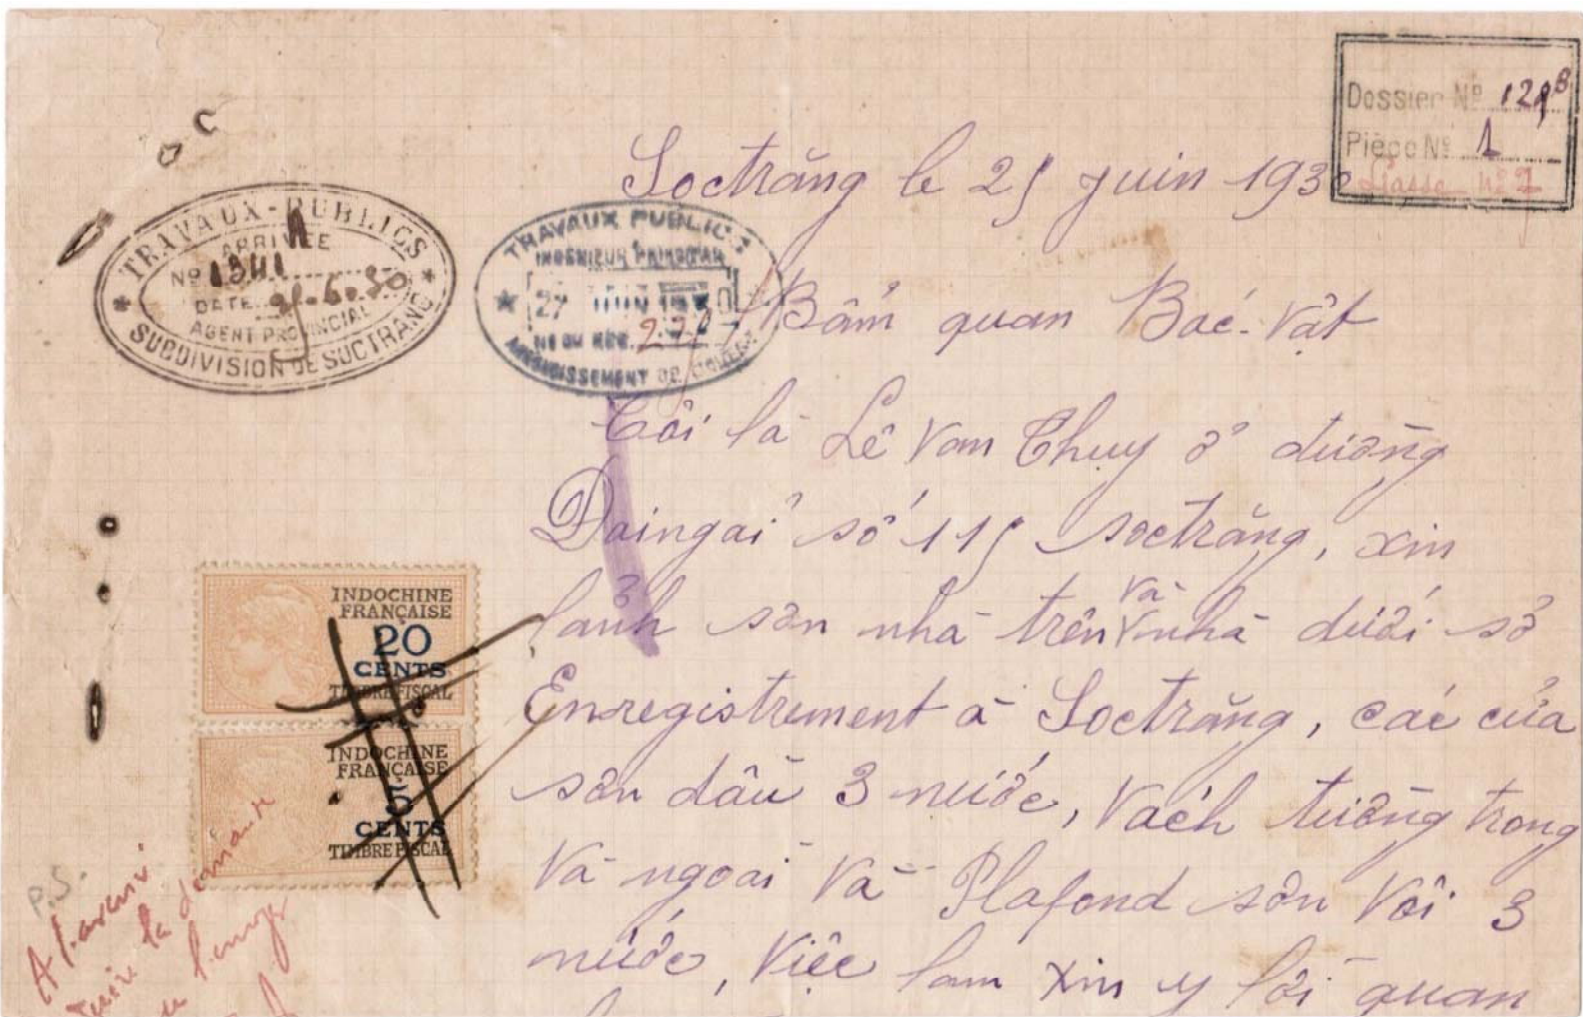 Dossier Nº 129B
Pièce Nº 1
Liasse nº 1
Soctrăng le 25 juin 1930
TRAVAUX-PUBLICS
ARRIVÉE
Nº 1341
DATE 21-6-30
AGENT PROVINCIAL
SUBDIVISION DE SOCTRANG
TRAVAUX PUBLICS
INGENIEUR PRINCIPAL
27 JUIN 1930
Nº DU REG.
ARRONDISSEMENT DE
Bẩm quan Bác-Vật
Tôi là Lê Van Thuy ở đường
Daingải số 115 Soctrăng, xin
lảnh sơn nhà trên và nhà dưới sở
Enregistrement à Soctrăng, các cửa
sơn dầu 3 nước, Vách tường trong
Và ngoài Và Plafond sơn Vôi 3
nước, Việc làm xin y lời quan
INDOCHINE
FRANÇAISE
20
CENTS
TIMBRE FISCAL
INDOCHINE
FRANÇAISE
5
CENTS
TIMBRE FISCAL
P.S.
A l'avenir
la demande